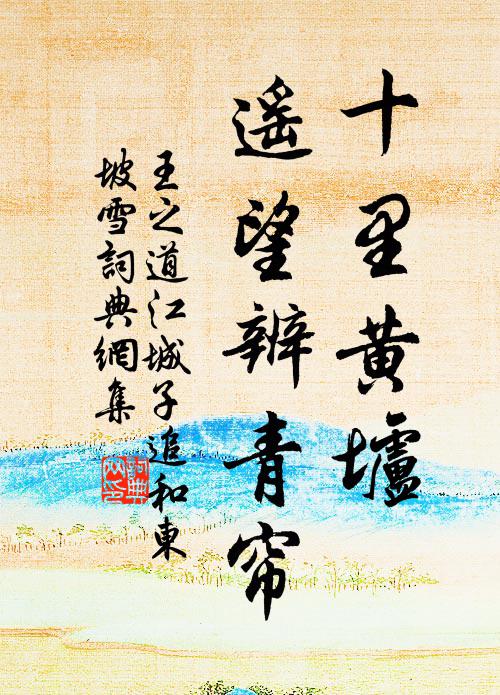 十里黄壚
遥望辨青帘
王之道江城子追和東
坡雪詞典網集
詞典